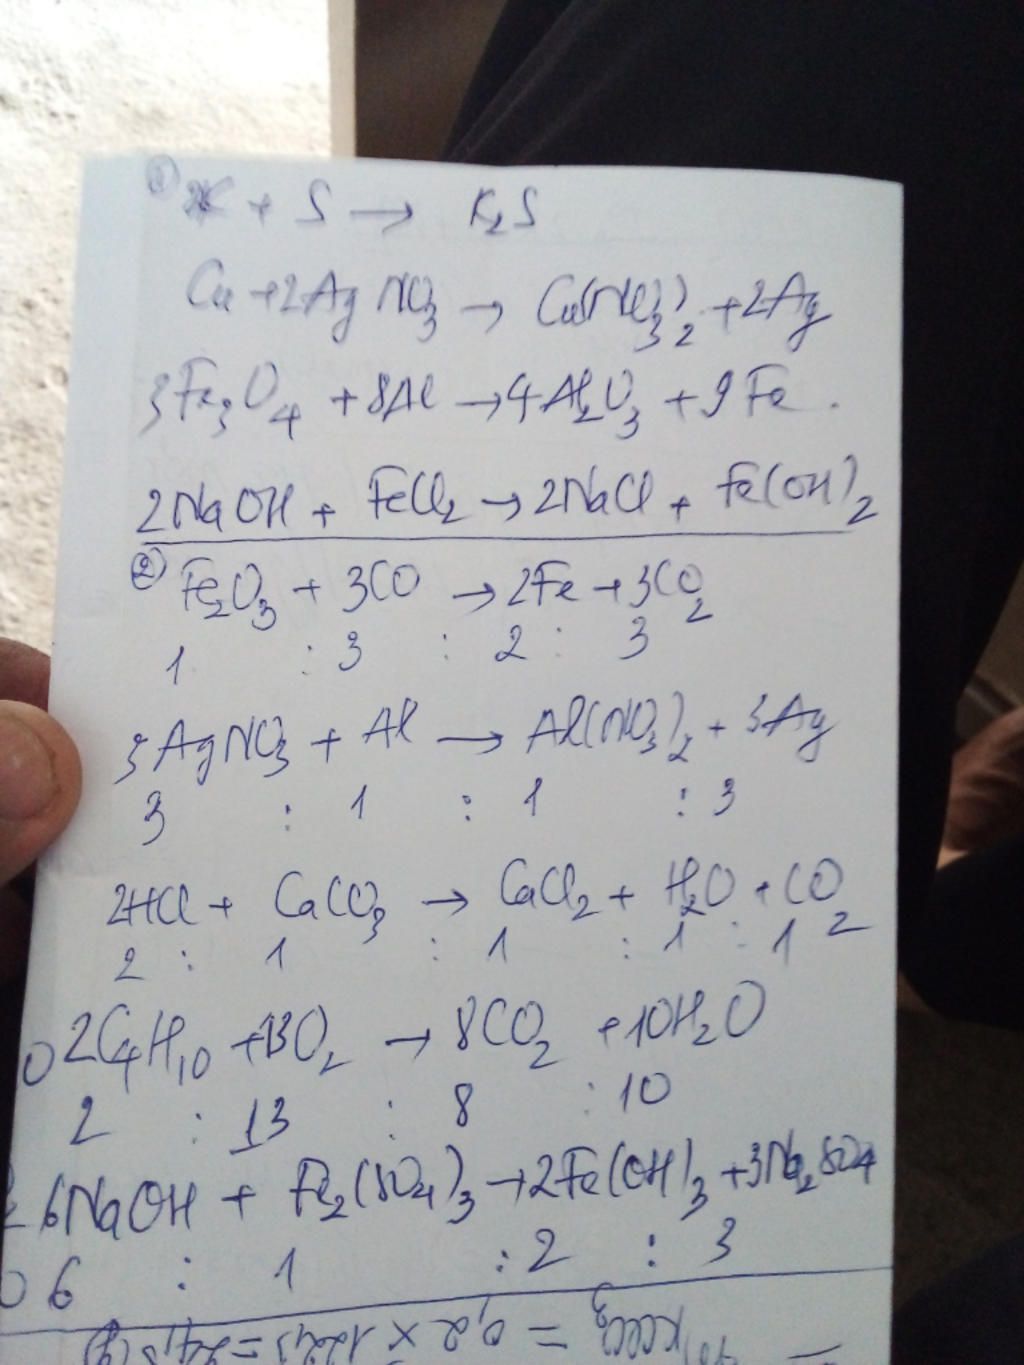 ① 2K + S → K₂S
Cu + 2AgNO₃ → Cu(NO₃)₂ + 2Ag
3Fe₃O₄ + 8Al → 4Al₂O₃ + 9Fe.
2NaOH + FeCl₂ → 2NaCl + Fe(OH)₂
② Fe₂O₃ + 3CO → 2Fe + 3CO₂
1 : 3 : 2 : 3
3AgNO₃ + Al → Al(NO₃)₂ + 3Ag
3 : 1 : 1 : 3
2HCl + CaCO₃ → CaCl₂ + H₂O + CO₂
2 : 1 : 1 : 1 : 1
2C₄H₁₀ + 13O₂ → 8CO₂ + 10H₂O
2 : 13 : 8 : 10
6NaOH + Fe₂(SO₄)₃ → 2Fe(OH)₃ + 3Na₂SO₄
6 : 1 : 2 : 3
KClO₃ = 0,2 × 122,5 = 24,5 (g)